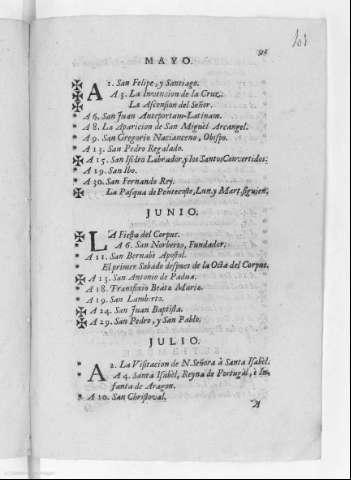 95
101
MAYO.
A 1. San Felipe, y Santiago.
A 3. La Invencion de la Cruz.
La Ascension del Señor.
A 6. San Juan Anteportam-Latinam.
A 8. La Aparicion de San Miguel Arcangel.
A 9. San Gregorio Nacianceno, Obispo.
A 13. San Pedro Regalado.
A 15. San Isidro Labrador, y los Santos Convertidos.
A 19. San Ibo.
A 30. San Fernando Rey.
La Pasqua de Pentecoste, Lun. y Mart. siguien.
JUNIO.
LA Fiesta del Corpus.
A 6. San Norberto, Fundador.
A 11. San Bernabè Apostol.
El primer Sabado despues de la Octa del Corpus.
A 13. San Antonio de Padua.
A 18. Transfixio Beatæ Mariæ.
A 19. San Lamberto.
A 24. San Juan Baptista.
A 29. San Pedro, y San Pablo.
JULIO.
A 2. La Visitacion de N. Señora à Santa Isabèl.
A 4. Santa Isabèl, Reyna de Portugal, è In-
fanta de Aragon.
A 10. San Christoval.
A